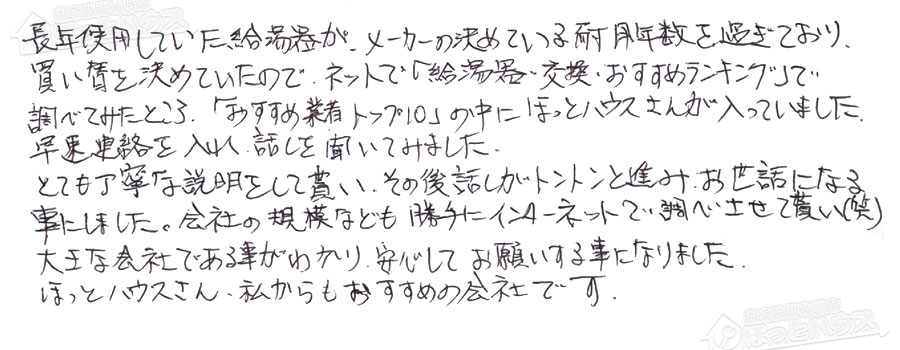 長年使用していた給湯器が、メーカーの決めている耐用年数を過ぎており、
買い替を決めていたので、ネットで「給湯器・交換・おすすめランキング」で
調べてみたところ、「おすすめ業者トップ10」の中にほっとハウスさんが入っていました。
早速連絡を入れ、話しを聞いてみました。
とても丁寧な説明をして貰い、その後話しがトントンと進み、お世話になる
事にしました。会社の規模なども勝手にインターネットで調べさせて貰い(笑)
大きな会社である事がわかり、安心してお願いする事になりました。
ほっとハウスさん、私からもおすすめの会社です。
ほっとハウス